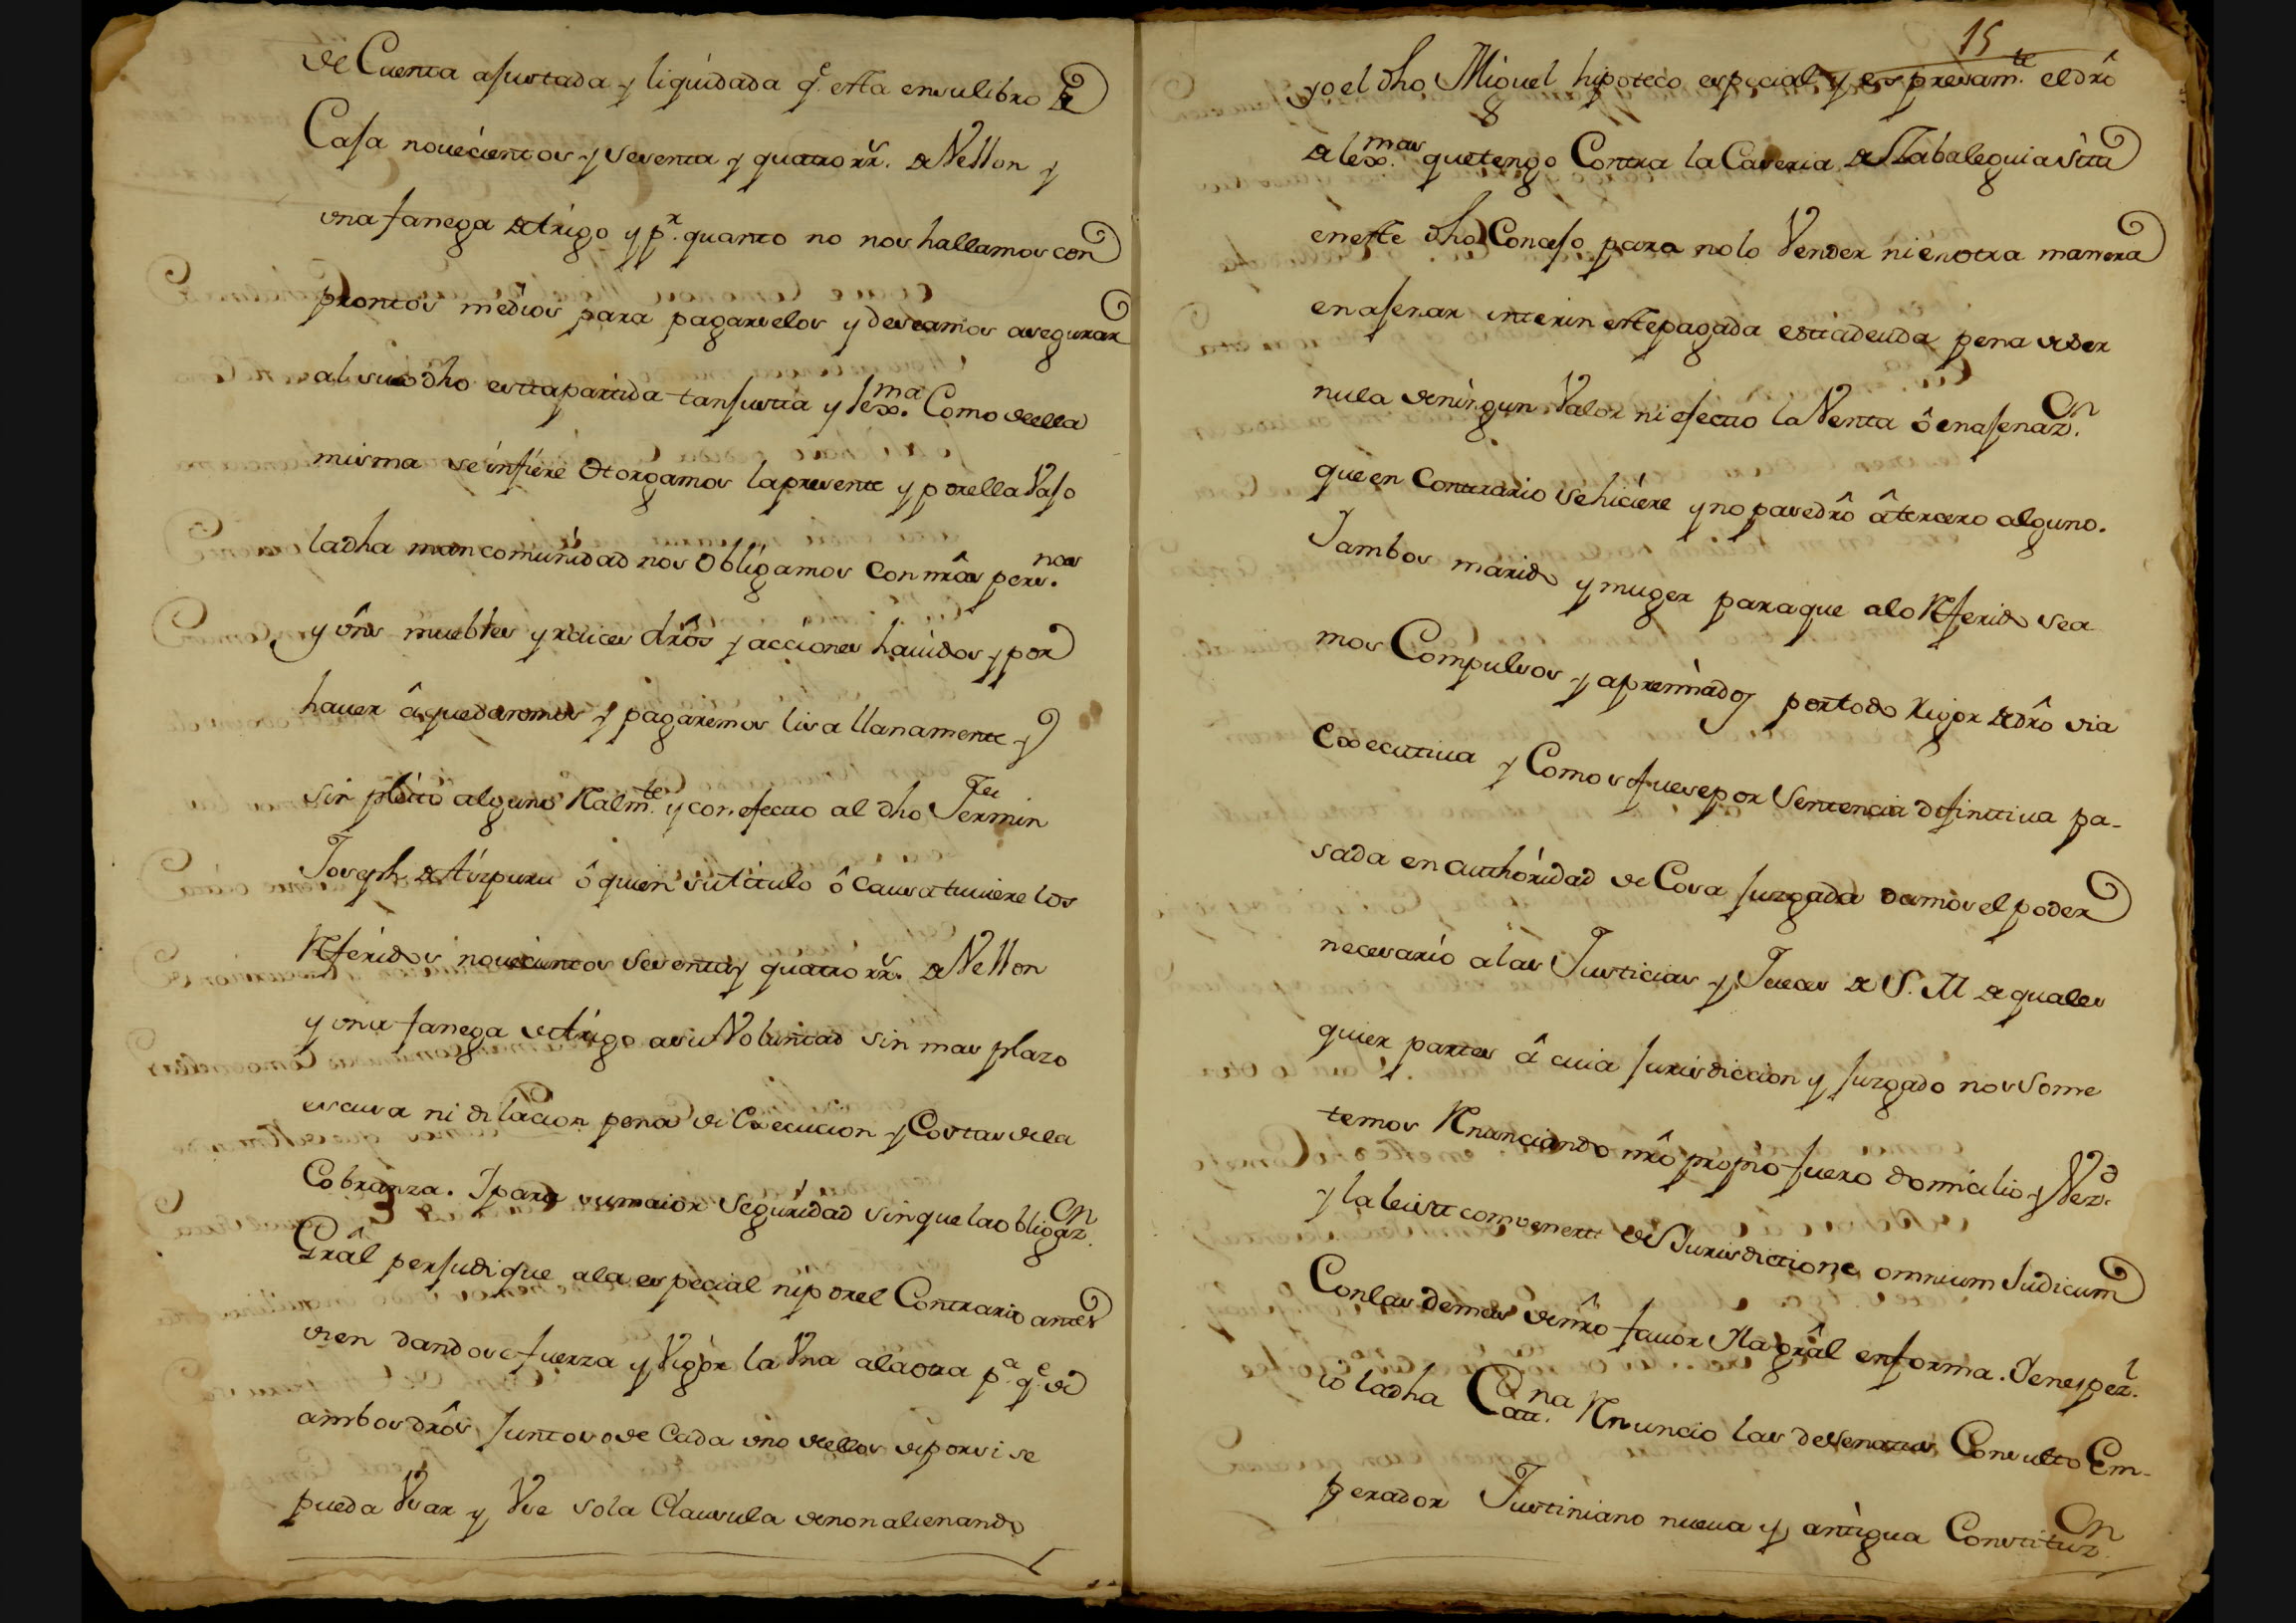 de Cuenta ajustada y liquidada q.e esta en su libro de
Casa novecientos y sesenta y quatro rr.s de Vellon y
una fanega de trigo y p.r quanto no nos hallamos con
prontos medios para pagarselos y deseamos asegurar
al suso dho esta partida tan justa y lex.ma Como de ella
misma se infiere Otorgamos la presente y por ella Vajo
la dha mancomunidad nos Obligamos con nrâs pers.nas
y vns muebles y raices drôs y acciones havidos y por
haver â que daremos y pagaremos lisa llanamente y
sin pleito alguno Realm.te y con efecto al dho Fermin
Joseph de Aizpuru ô quien su titulo ô causa tuviere los
Referidos novecientos sesenta y quatro rr.s de Vellon
y una fanega de trigo a su Voluntad sin mas plazo
escusa ni dilacion pena de Execucion y Costas de la
Cobranza. I para su maior Seguridad sin que la obligaz.on
Grâl perjudique a la especial ni por el Contrario antes
vien dandose fuerza y Vigor la Vna a la otra p.a q.e de
ambos drôs juntos o de Cada vno de ellos de por si se
pueda Vsar y Vse so la Clausula de non alienando
15
yo el dho Miguel hipoteco especial y espresam.te el drô
de lex.mas que tengo Contra la Caseria de Zabaleguia sita
en este dho Concejo para no lo Vender ni en otra manera
enajenar interin este pagada esta deuda pena de ser
nula de ningun Valor ni efecto la Venta ô enajenaz.on
que en Contrario se hiciere y no pase drô â tercero alguno.
I ambos marido y muger para que a lo Referido sea
mos Compulsos y apremiados por todo rigor de drô via
Executiva y Como si fuese por Sentencia difinitiva pa-
sada en authoridad de Cosa juzgada damos el poder
necesario a las Justicias y Jueces de S. M de quales
quier partes â cuia jurisdiccion y juzgado nos Some
temos Renunciando nrô propio fuero domicilio y Vez.d
y la lei sit convenerit de Jurisdictione omnium Judicum
Con las demas de nrô favor y la grâl en forma. I en espez.l
io la dha Cat.na Renuncio las del Senatus Consulto Em-
perador Justiniano nueva y antigua Constituz.on